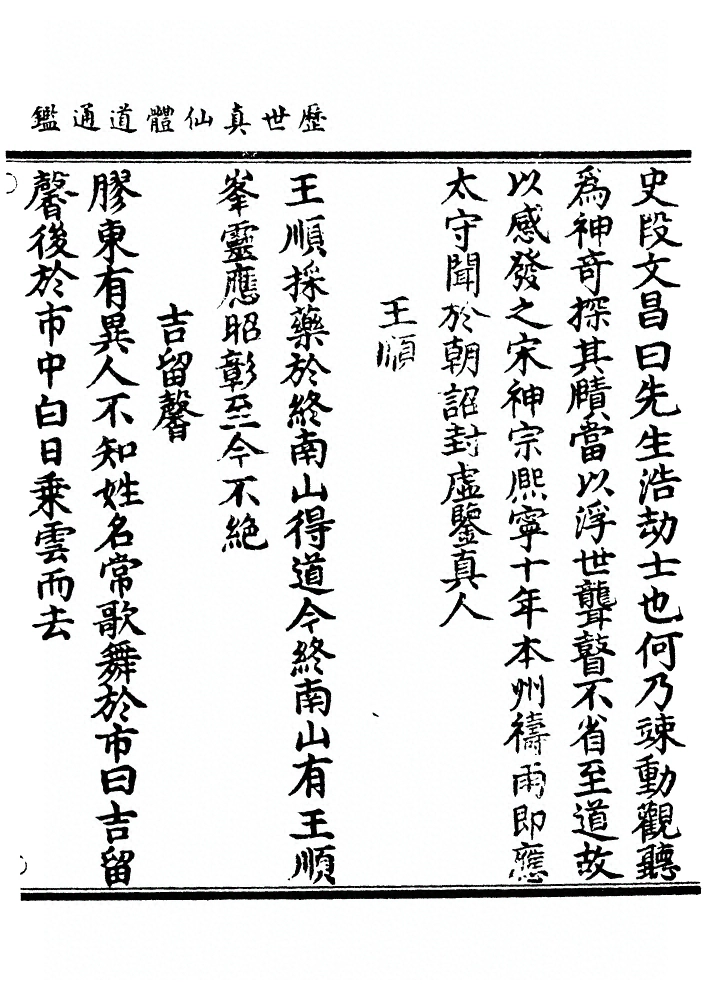 歷世真仙體道通鑑
史段文昌曰先生浩劫士也何乃竦動觀聽
為神奇探其賾當以浮世聾瞽不省至道故
以感發之宋神宗熙寧十年本州禱雨即應
太守聞於朝詔封虛鑒真人
王順
王順採藥於終南山得道今終南山有王順
峯靈應昭彰至今不絕
吉留馨
膠東有異人不知姓名常歌舞於市曰吉留
馨後於市中白日乘雲而去